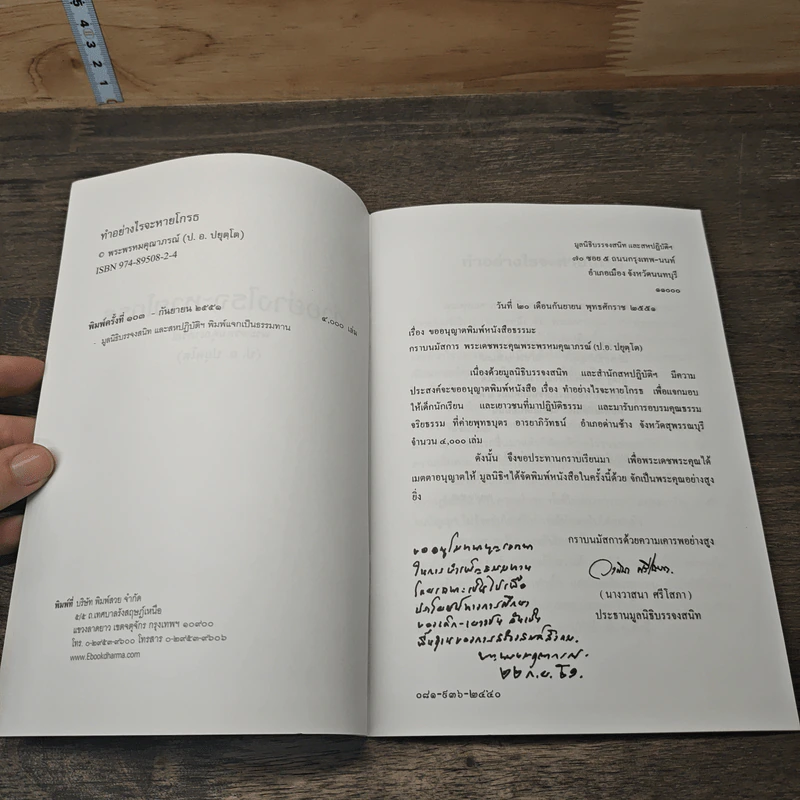 5
4
3
2
1
ทำอย่างไรจะหายโกรธ
© พระพรหมคุณาภรณ์ (ป. อ. ปยุตฺโต)
ISBN 974-89508-2-4
พิมพ์ครั้งที่ ๑๐๓ - กันยายน ๒๕๕๑ ๔,๐๐๐ เล่ม
- มูลนิธิบรรจงสนิท และสหปฏิบัติฯ พิมพ์แจกเป็นธรรมทาน
พิมพ์ที่ บริษัท พิมพ์สวย จำกัด
๕/๕ ถ.เทศบาลรังสฤษฏ์เหนือ
แขวงลาดยาว เขตจตุจักร กรุงเทพฯ ๑๐๙๐๐
โทร. ๐-๒๙๕๓-๙๖๐๐ โทรสาร ๐-๒๙๕๓-๙๖๐๖
www.Ebookdharma.com
มูลนิธิบรรจงสนิท และสหปฏิบัติฯ
๗๐ ซอย ๕ ถนนกรุงเทพ-นนท์
อำเภอเมือง จังหวัดนนทบุรี
๑๑๐๐๐
วันที่ ๒๐ เดือนกันยายน พุทธศักราช ๒๕๕๑
เรื่อง ขออนุญาตพิมพ์หนังสือธรรมะ
กราบนมัสการ พระเดชพระคุณพระพรหมคุณาภรณ์ (ป.อ. ปยุตฺโต)
เนื่องด้วยมูลนิธิบรรจงสนิท และสำนักสหปฏิบัติฯ มีความ
ประสงค์จะขออนุญาตพิมพ์หนังสือ เรื่อง ทำอย่างไรจะหายโกรธ เพื่อแจกมอบ
ให้เด็กนักเรียน และเยาวชนที่มาปฏิบัติธรรม และมารับการอบรมคุณธรรม
จริยธรรม ที่ค่ายพุทธบุตร อารยาภิวัทธน์ อำเภอด่านช้าง จังหวัดสุพรรณบุรี
จำนวน ๔,๐๐๐ เล่ม
ดังนั้น จึงขอประทานกราบเรียนมา เพื่อพระเดชพระคุณได้
เมตตาอนุญาตให้ มูลนิธิฯได้จัดพิมพ์หนังสือในครั้งนี้ด้วย จักเป็นพระคุณอย่างสูง
ยิ่ง
กราบนมัสการด้วยความเคารพอย่างสูง
วาสนา ศรีโสภา
(นางวาสนา ศรีโสภา)
ประธานมูลนิธิบรรจงสนิท
ขออนุโมทนา
ในการบำเพ็ญธรรมทาน
โดยเฉพาะเป็นไปเพื่อ
ประโยชน์ทางการศึกษา
ของเด็ก-เยาวชน อันเป็น
พื้นฐานของการ
๒๒ ก.ย. ๕๑
๐๘๑-๙๓๖-๒๕๔๐